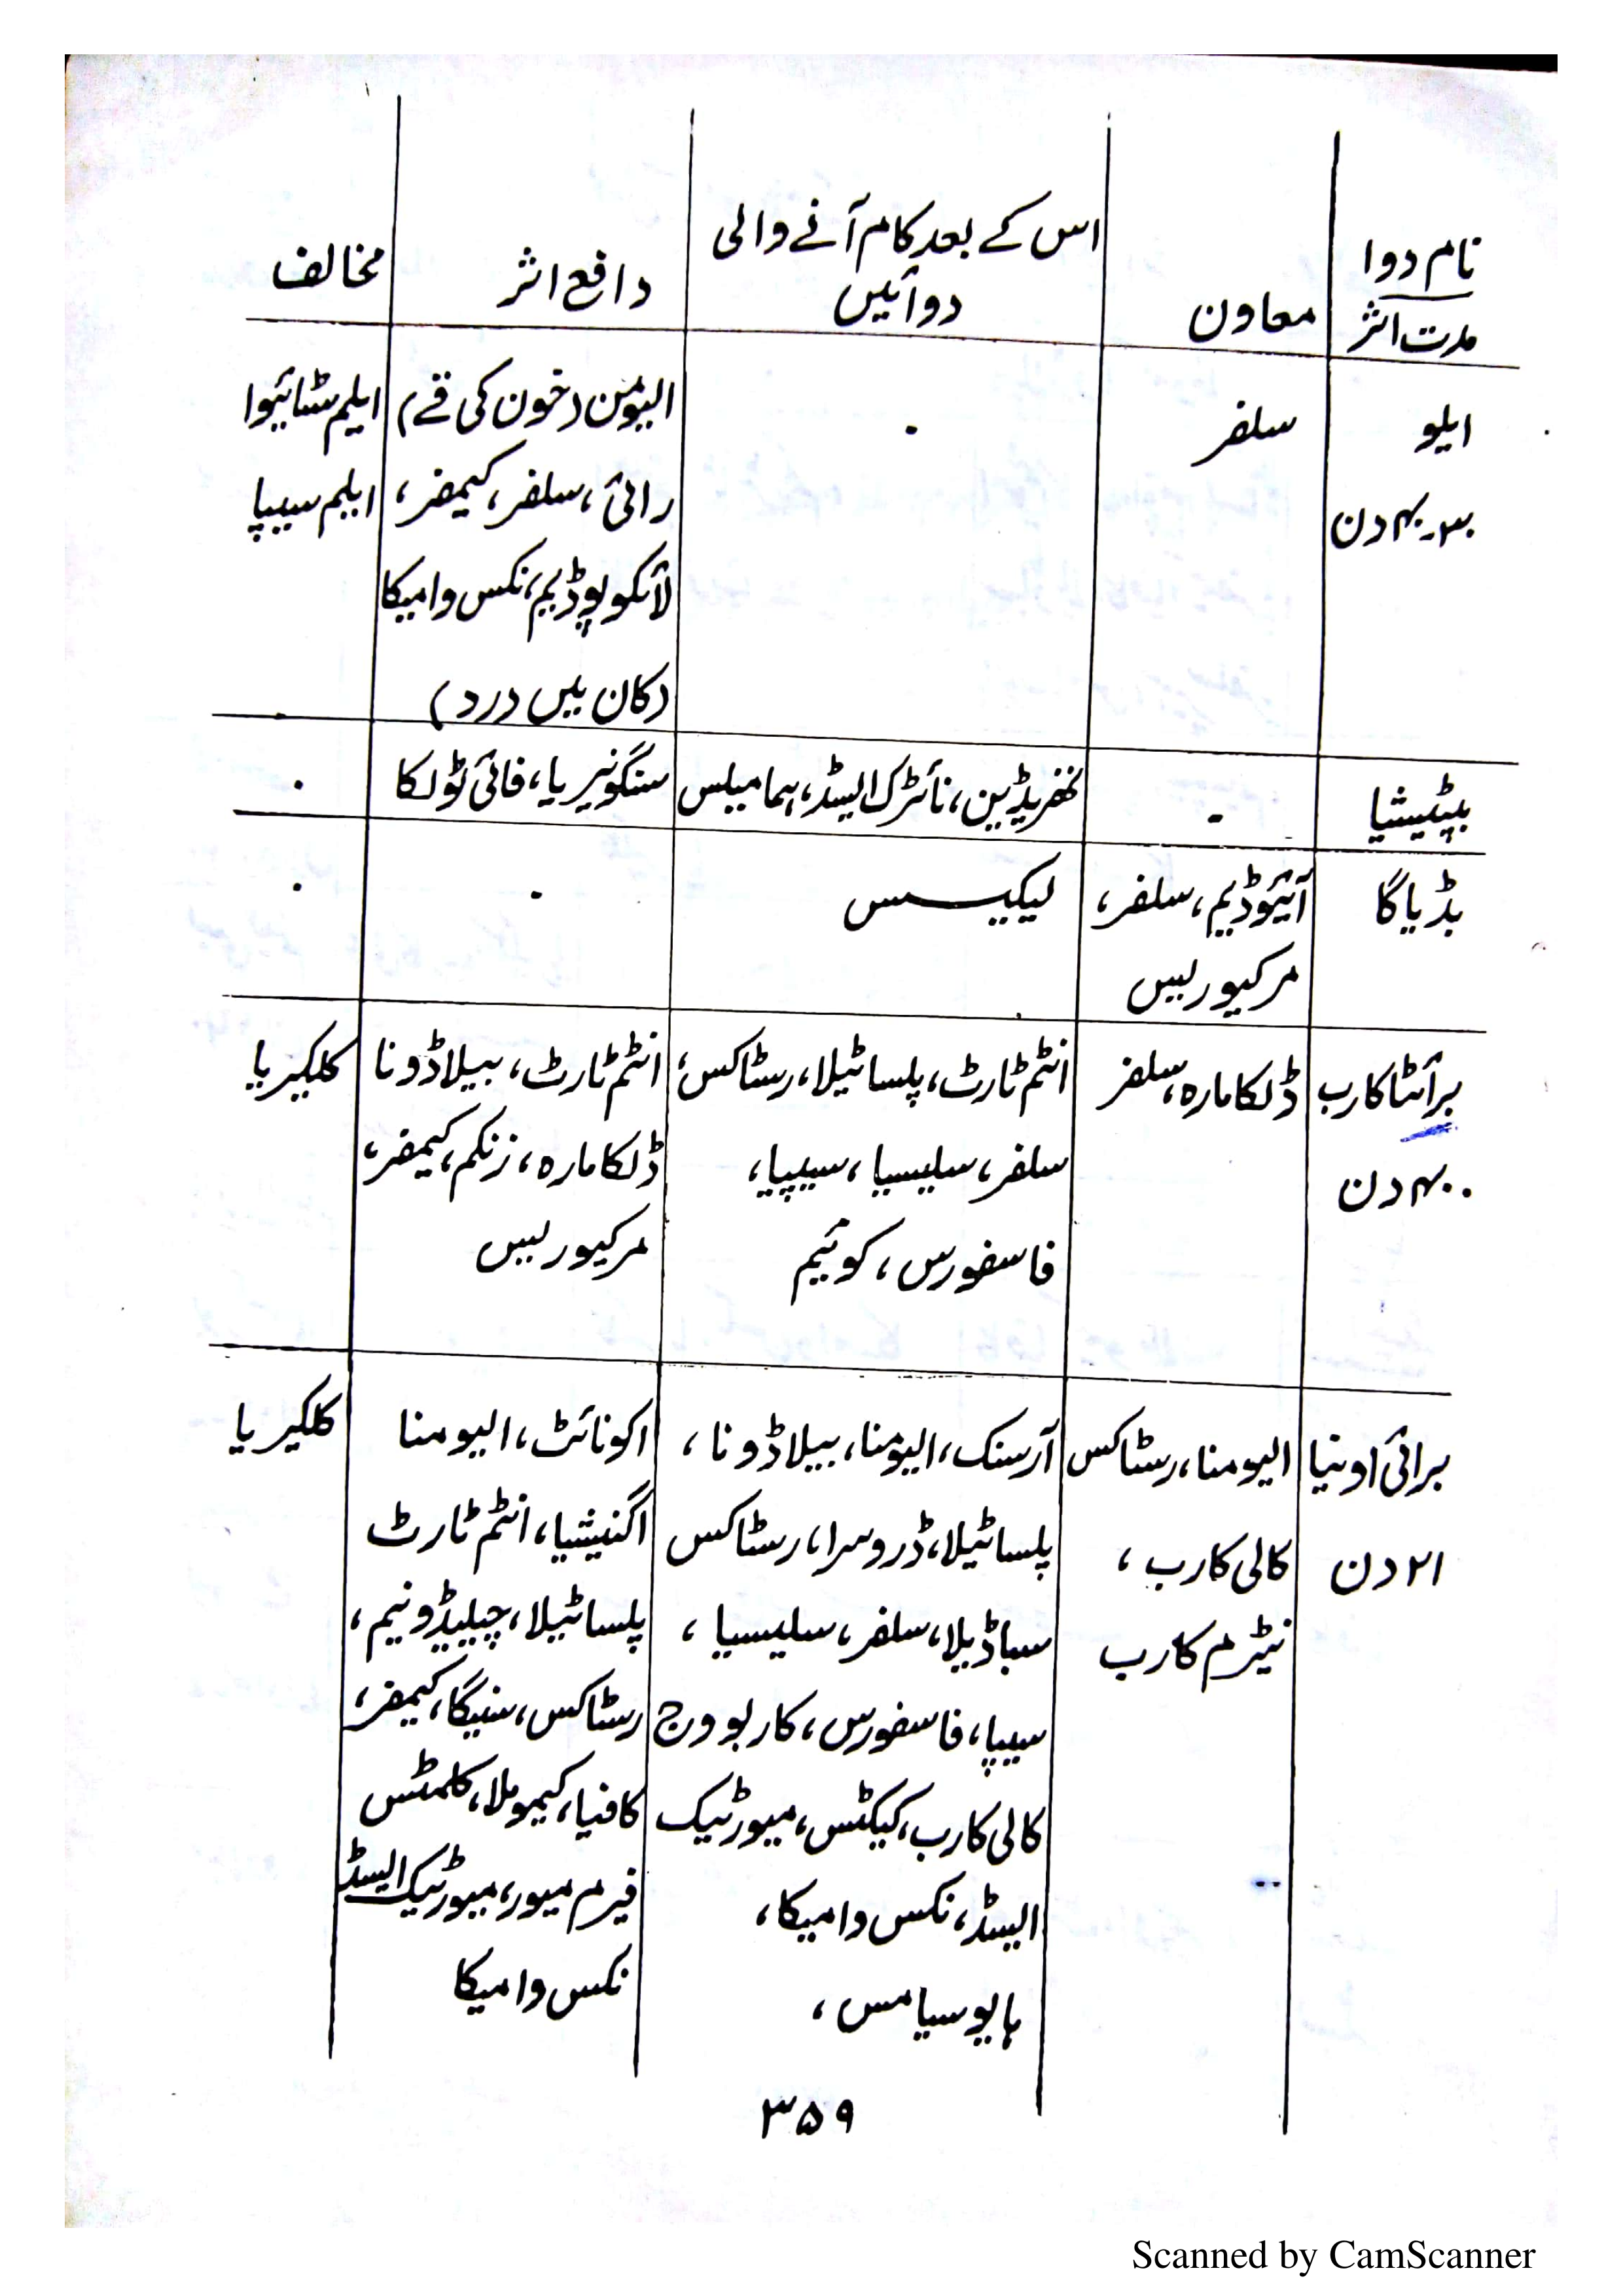 نام دوا
مدت اثر
معاون
اس کے بعد کام آنے والی
دوائیں
دافع اثر
مخالف
ایلو
۳۰-۴۰ دن
سلفر
۔
الیومن (خون کی قے)
رائی، سلفر، کیمفر،
لائکوپوڈیم، نکس وامیکا
(کان میں درد)
ایلیم سٹائیوا
ایلیم سیپا
بپٹیشیا
۔
نائٹرک ایسڈ، ہمامیلس
سنگونیریا، فائی ٹولکا
۔
بڈیاگا
آئیوڈیم، سلفر،
مرکیوریس
لیکیسس
۔
۔
برائٹا کارب
۴۰ دن
ڈلکامارہ، سلفر
انٹم ٹارٹ، پلساٹیلا، رسٹاکس،
سلفر، سلیسیا، سیپیا،
فاسفورس، کونیم
انٹم ٹارٹ، بیلاڈونا
ڈلکامارہ، زنکم، کیمفر،
مرکیوریس
کلکیریا
برائی اونیا
۲۱ دن
الیومنا، رسٹاکس
کالی کارب،
نیٹرم کارب
آرسنک، الیومنا، بیلاڈونا،
پلساٹیلا، ڈروسرا، رسٹاکس
سباڈیلا، سلفر، سلیسیا،
سیپیا، فاسفورس، کاربوویج
کالی کارب، کیکٹس، میورٹیک
ایسڈ، نکس وامیکا،
ہایوسیامس،
اکونائٹ، الیومنا
اگنیشیا، انٹم ٹارٹ
پلساٹیلا، چیلیڈونیم،
رسٹاکس، سنیگا، کیمفر،
کافیا، کیموملا، کلمٹس
فیرم میور، میورٹیک ایسڈ
نکس وامیکا
کلکیریا
۳۵۹
Scanned by CamScanner